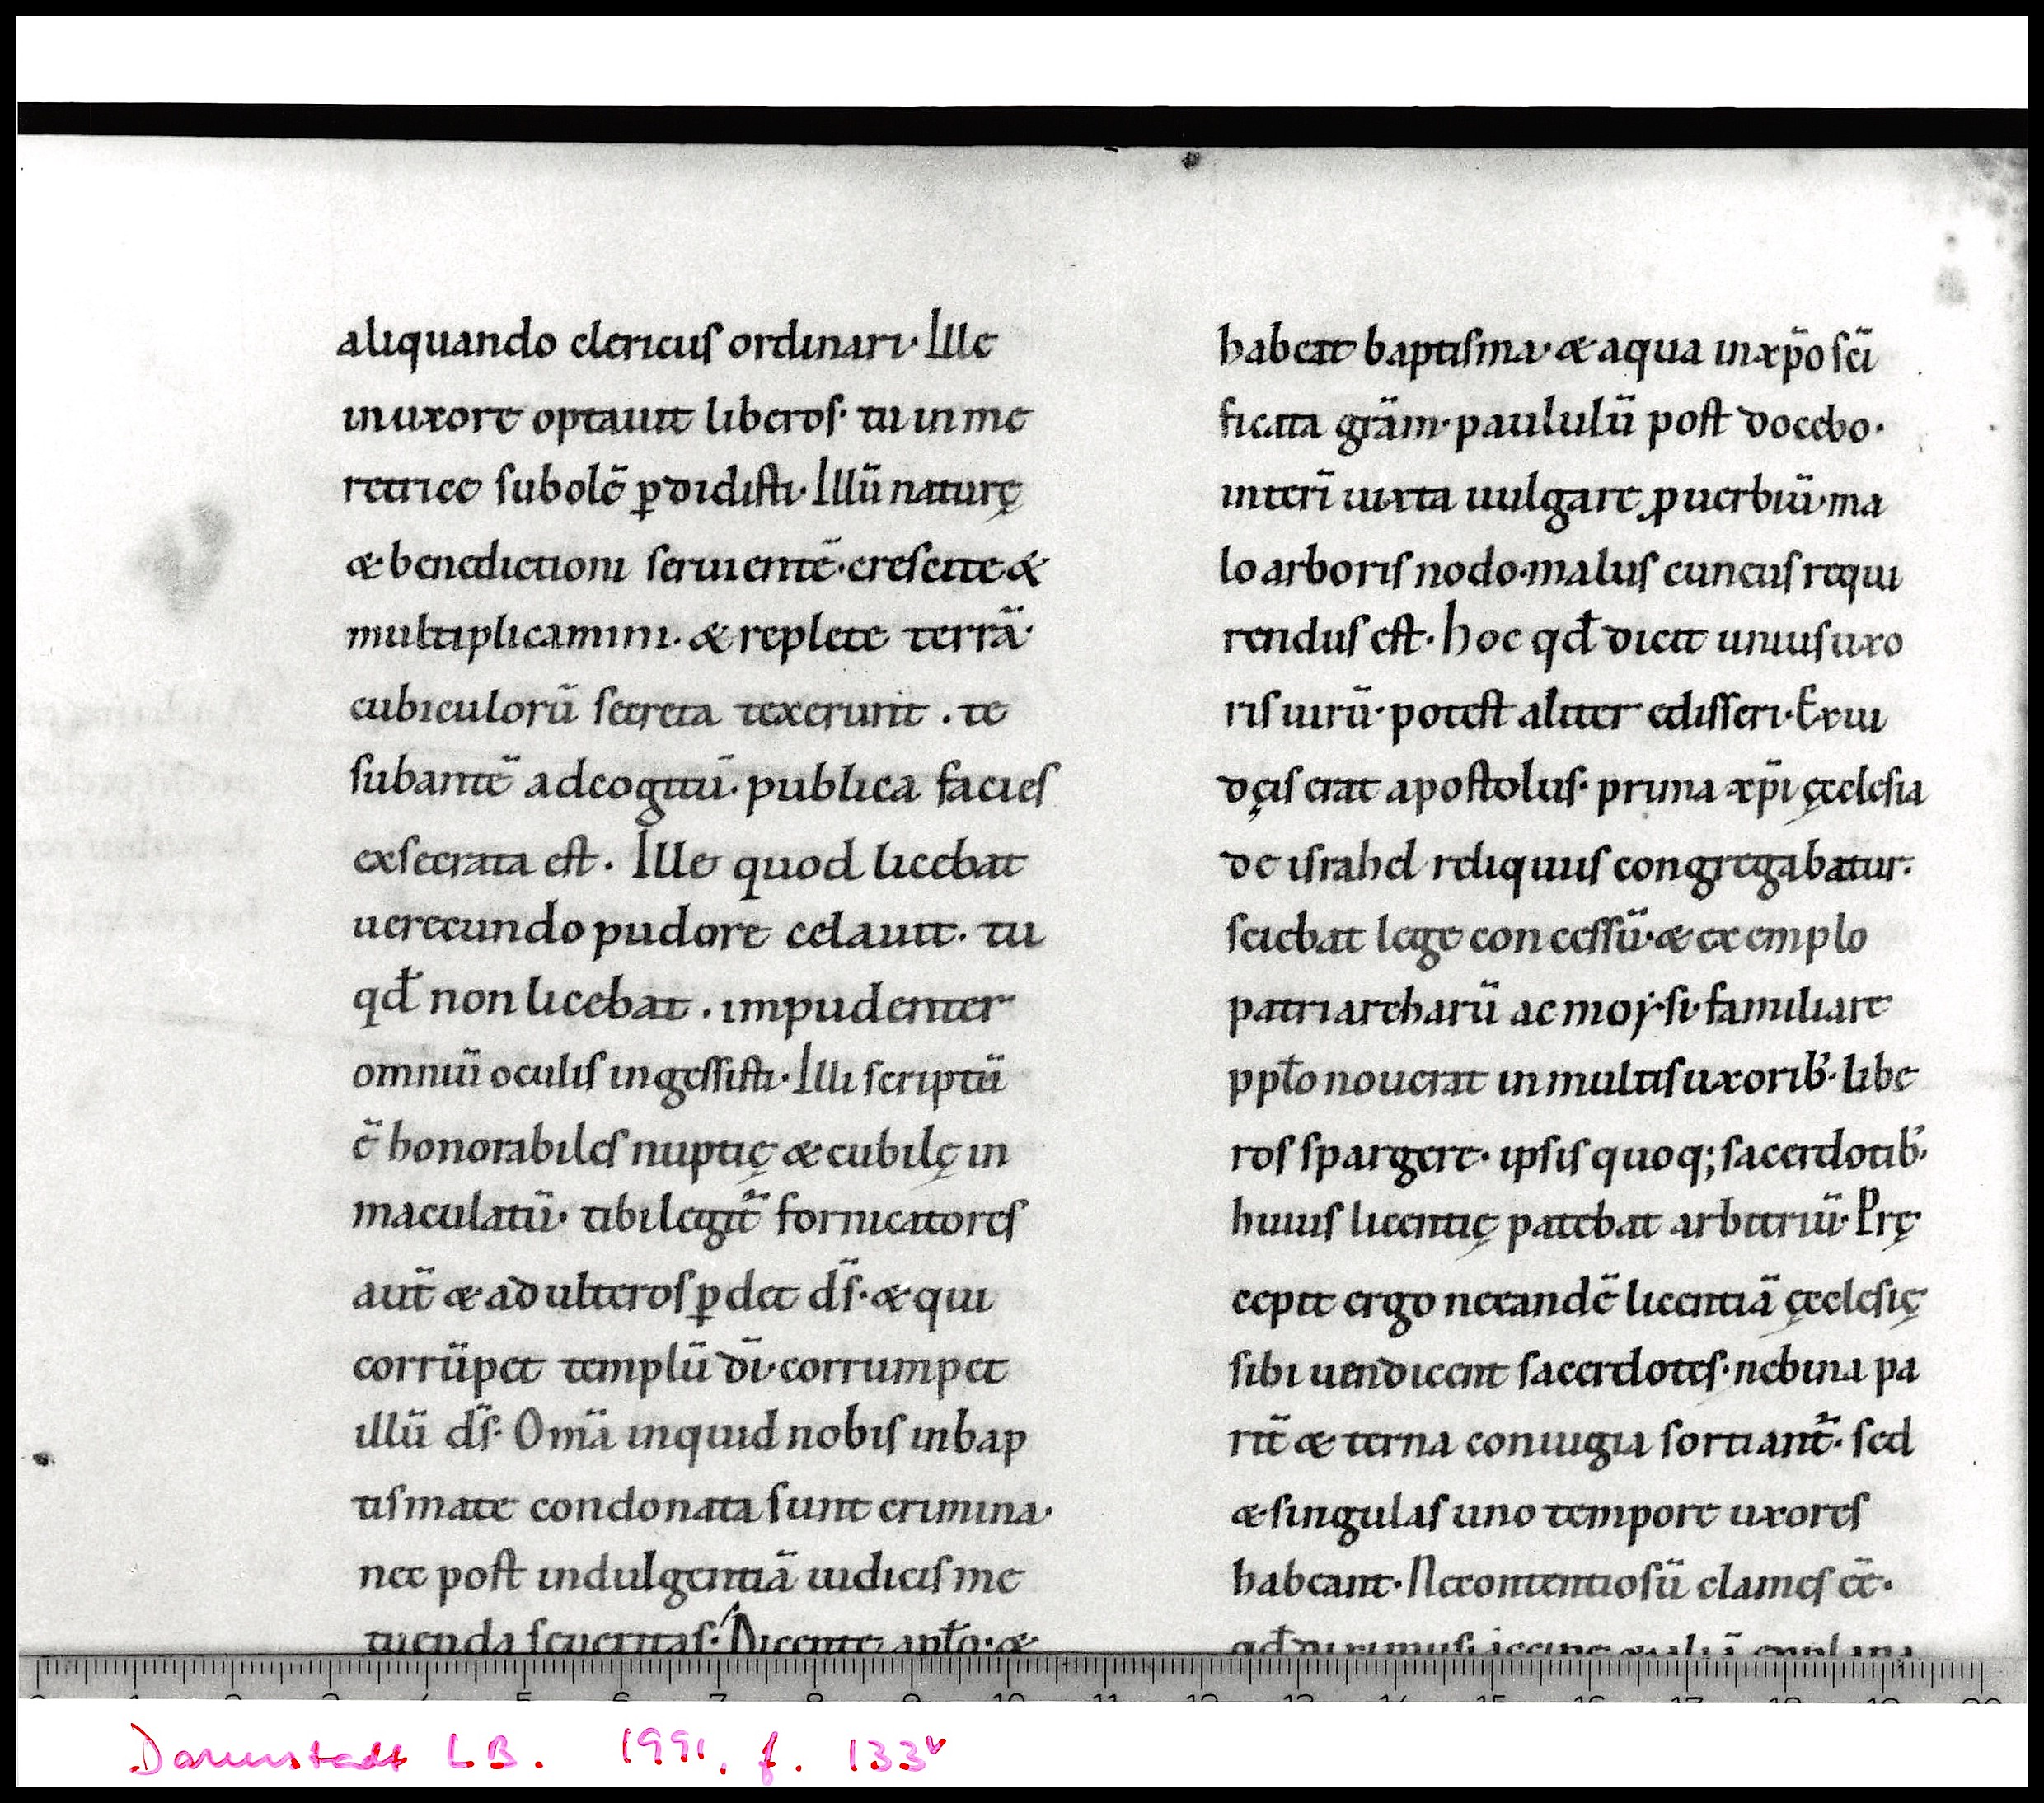 aliquando clericus ordinari· Ille
inuxore optauit liberos· tu inme
retrice subolē ꝑdidisti· Illū naturę
& benedictioni seruientē· crescite &
multiplicamini· & replete terrā·
cubiculorū secreta texerunt . te
subantē adcogitū· publica facies
exsecrata est . Ille quod licebat
uerecundo pudore celauit . tu
qđ non licebat . impudenter
omniū oculis ingessisti· Illi scriptū
ē honorabiles nuptię & cubilę in
maculatū· tibi legit̄ fornicatores
aut̄ & adulteros ꝑdet ds̄· & qui
corrūpet templū dī· corrumpet
illū ds̄· Om̄a inquid nobis inbap
tismate condonata sunt crimina·
nec post indulgentiā iudicis me
tuenda seueritas· Dicente apło· &
habeat baptisma· & aqua inxp̄o sc̄i
ficata grām· paululū post docebo·
interī iuxta uulgare ꝓuerbiū· ma
lo arboris nodo· malus cuneus requi
rendus est· hoc qđ dicit unius uxo
ris uirū· potest aliter edisseri· Exiu
dęis erat apostolus· prima xp̄i ęcclesia
de israhel reliquiis congregabatur·
sciebat lege concessū· & exemplo
patriarcharū ac moysi· familiare
ppło nouerat in multis uxorib· libe
ros spargere· ipsis quoq; sacerdotib·
huius licentię patebat arbitriū· Prę
cepit ergo necandē licentiā ęcclesię
sibi uendicent sacerdotes· nebina pa
rit̄ & terna coniugia sortiant̄· sed
& singulas uno tempore uxores
habeant· Necontentiosū clames eē·